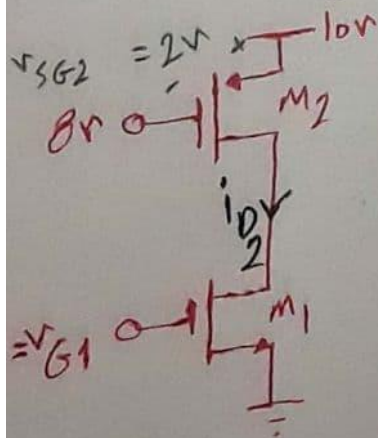 vSG2 = 2v
10v
8v
M2
iD2
M1
=vG1